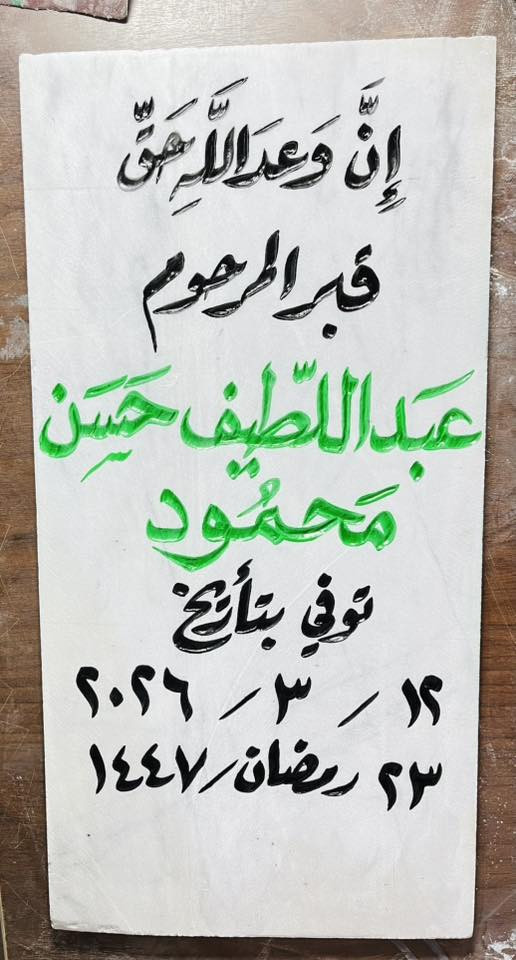 إِنَّ وَعدَ اللَّهِ حَقّ
قبر المرحوم
عبَد اللّطيف حَسَِن
مَحمُود
توفي بتأريخ
١٢ / ٣ / ٢٠٢٦
٢٣ رمضان / ١٤٤٧